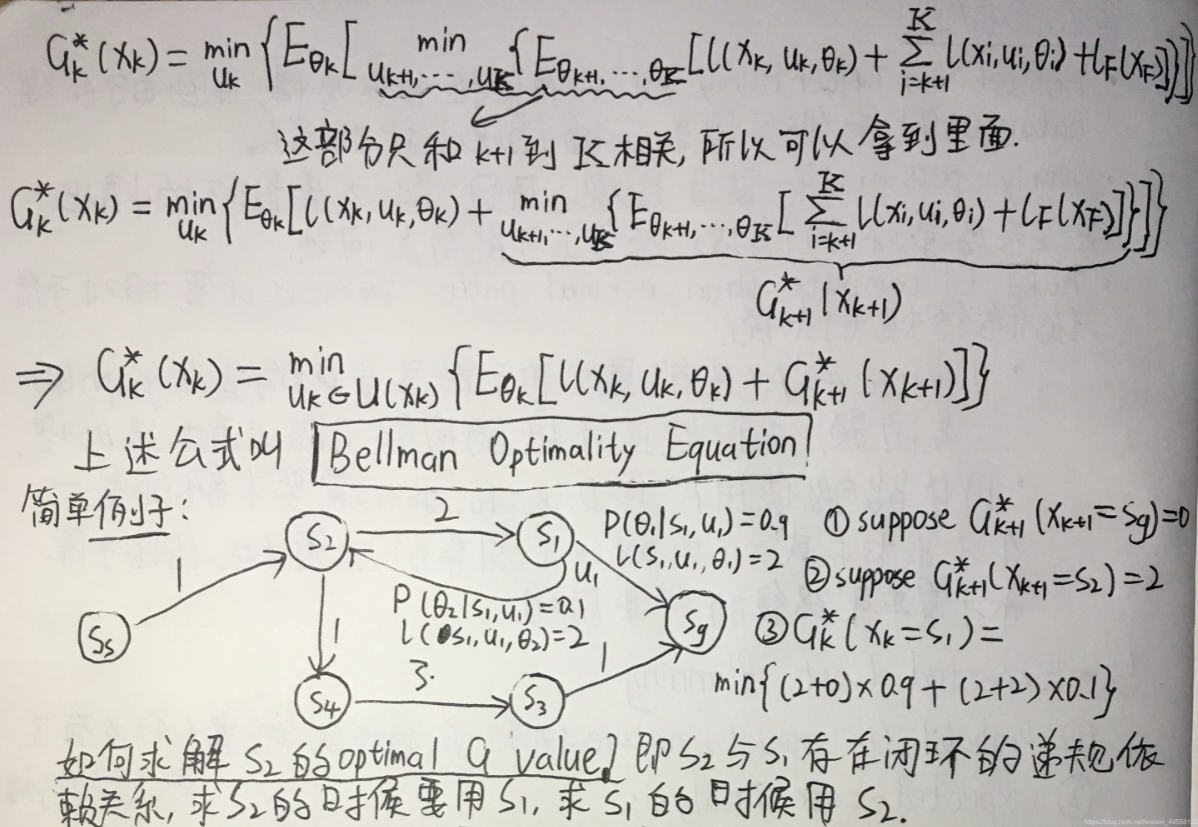 G*k(xk) = min uk {Eθk[ min uk+1,...,uK {Eθk+1,...,θK [l(xk, uk, θk) + K∑i=k+1 l(xi, ui, θi) + lF(xF)]}]}
这部分只和 k+1 到 K 相关, 所以可以拿到里面.
G*k(xk) = min uk {Eθk[l(xk, uk, θk) + min uk+1,...,uK {Eθk+1,...,θK [K∑i=k+1 l(xi, ui, θi) + lF(xF)]}]}
G*k+1(xk+1)
⇒ G*k(xk) = min uk∈U(xk) {Eθk[l(xk, uk, θk) + G*k+1(xk+1)]}
上述公式叫 Bellman Optimality Equation
简单例子:
S2
2
S1
P(θ1|S1, u1) = 0.9
l(S1, u1, θ1) = 2
u1
① suppose G*k+1(xk+1 = Sg) = 0
② suppose G*k+1(xk+1 = S2) = 2
1
P(θ2|S1, u1) = 0.1
l(S1, u1, θ2) = 2
Ss
1
Sg
③ G*k(xk = S1) =
min{(2+0)×0.9 + (2+2)×0.1}
3.
1
S4
S3
如何求解 S2 的 optimal G value? 即 S2 与 S1 存在闭环的递规依
赖关系, 求 S2 的时候要用 S1, 求 S1 的时候用 S2.